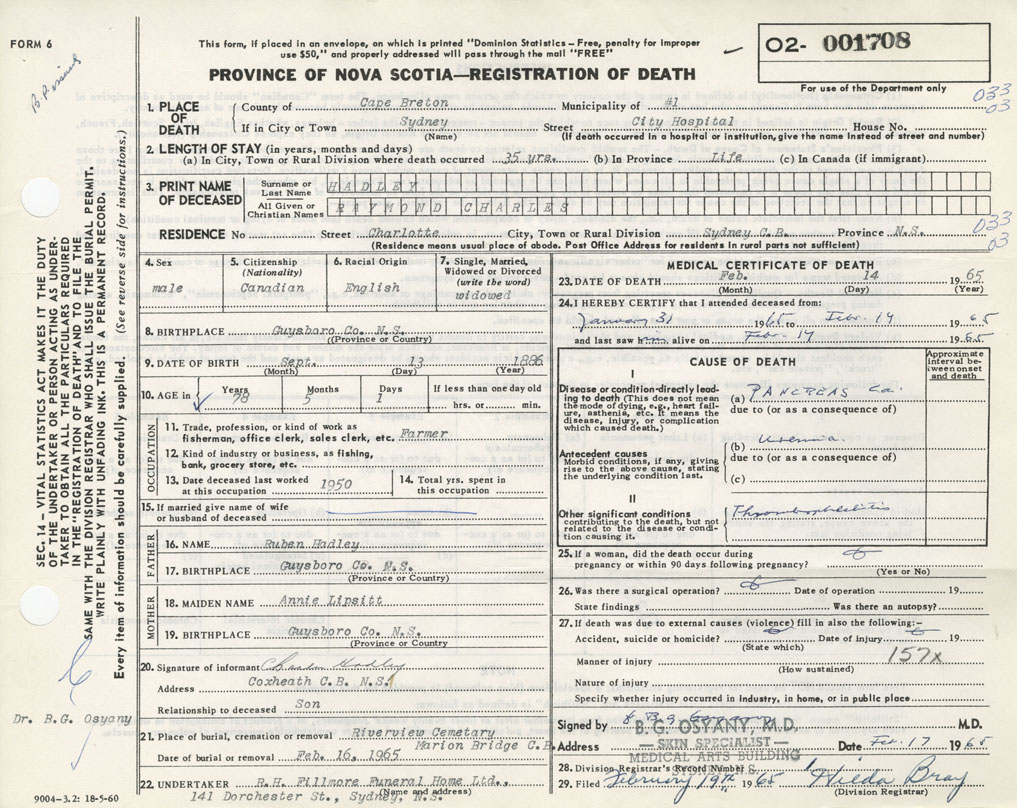 FORM 6
This form, if placed in an envelope, on which is printed "Dominion Statistics—Free, penalty for improper
use $50," and properly addressed will pass through the mail "FREE"
O2- 001708
For use of the Department only
PROVINCE OF NOVA SCOTIA—REGISTRATION OF DEATH
033
03
1. PLACE OF DEATH
County of Cape Breton Municipality of #1
If in City or Town Sydney Street City Hospital House No.
(Name) (If death occurred in a hospital or institution, give the name instead of street and number)
2. LENGTH OF STAY (in years, months and days)
(a) In City, Town or Rural Division where death occurred 35 yrs. (b) In Province Life (c) In Canada (if immigrant)
3. PRINT NAME OF DECEASED
Surname or Last Name HADLEY
All Given or Christian Names RAYMOND CHARLES
RESIDENCE No Street Charlotte City, Town or Rural Division Sydney C.B. Province N.S.
(Residence means usual place of abode. Post Office Address for residents in rural parts not sufficient)
033
03
4. Sex male
5. Citizenship (Nationality) Canadian
6. Racial Origin English
7. Single, Married, Widowed or Divorced (write the word) widowed
8. BIRTHPLACE Guysboro Co. N.S.
(Province or Country)
9. DATE OF BIRTH Sept. 13 1886
(Month) (Day) (Year)
10. AGE in Years 78 Months 5 Days 1 If less than one day old hrs. or min.
OCCUPATION
11. Trade, profession, or kind of work as fisherman, office clerk, sales clerk, etc. Farmer
12. Kind of industry or business, as fishing, bank, grocery store, etc.
13. Date deceased last worked at this occupation 1950
14. Total yrs. spent in this occupation
15. If married give name of wife or husband of deceased
FATHER
16. NAME Ruben Hadley
17. BIRTHPLACE Guysboro Co. N.S.
(Province or Country)
MOTHER
18. MAIDEN NAME Annie Lipsitt
19. BIRTHPLACE Guysboro Co. N.S.
(Province or Country)
20. Signature of informant Hadley
Address Coxheath C.B. N.S.
Relationship to deceased Son
21. Place of burial, cremation or removal Riverview Cemetary
Marion Bridge C.B.
Date of burial or removal Feb. 16, 1965
22. UNDERTAKER R.H. Fillmore Funeral Home Ltd.,
(Name and address)
141 Dorchester St., Sydney, N.S.
MEDICAL CERTIFICATE OF DEATH
23. DATE OF DEATH Feb. 14 1965
(Month) (Day) (Year)
24. I HEREBY CERTIFY that I attended deceased from:
January 31 1965 to Febr. 14 1965
and last saw him alive on Febr. 14 1965
CAUSE OF DEATH
Approximate interval between onset and death
I
Disease or condition directly leading to death (This does not mean the mode of dying, e.g., heart failure, asthenia, etc. It means the disease, injury, or complication which caused death.)
(a) PANCREAS Ca.
due to (or as a consequence of)
Antecedent causes
Morbid conditions, if any, giving rise to the above cause, stating the underlying condition last.
(b) Uremia
due to (or as a consequence of)
(c)
II
Other significant conditions
contributing to the death, but not related to the disease or condition causing it.
Thrombophlebitis
25. If a woman, did the death occur during pregnancy or within 90 days following pregnancy?
(Yes or No)
26. Was there a surgical operation? Date of operation 19
State findings Was there an autopsy?
27. If death was due to external causes (violence) fill in also the following:—
Accident, suicide or homicide? Date of injury 19
(State which)
157x
Manner of injury
(How sustained)
Nature of injury
Specify whether injury occurred in industry, in home, or in public place
Signed by M.D.
B. G. OSYANY, M.D.
— SKIN SPECIALIST —
MEDICAL ARTS BUILDING
SYDNEY, N.S.
Address Date Feb. 17 1965
28. Division Registrar's Record Number
29. Filed February 19th 1965 Hilda Bray
(Division Registrar)
SEC. 14—VITAL STATISTICS ACT MAKES IT THE DUTY
OF THE UNDERTAKER OR PERSON ACTING AS UNDERTAKER
TO OBTAIN ALL THE PARTICULARS REQUIRED
IN THE "REGISTRATION OF DEATH" AND TO FILE THE
SAME WITH THE DIVISION REGISTRAR WHO SHALL ISSUE THE BURIAL PERMIT.
WRITE PLAINLY WITH UNFADING INK. THIS IS A PERMANENT RECORD.
Every item of information should be carefully supplied. (See reverse side for instructions.)
Dr. B.G. Osyany
9004-3.2: 18-5-60